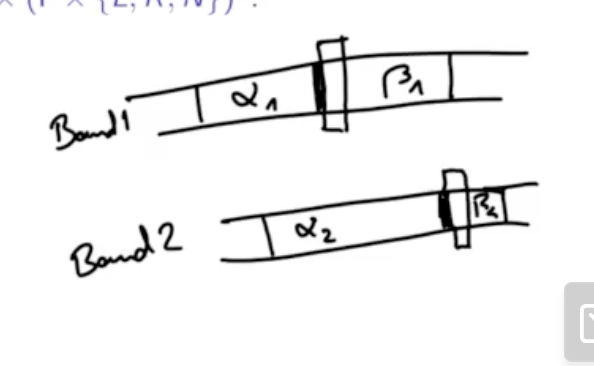 × (Γ × {L, R, N})
Band 1 α₁ β₁
Band 2 α₂ β₂